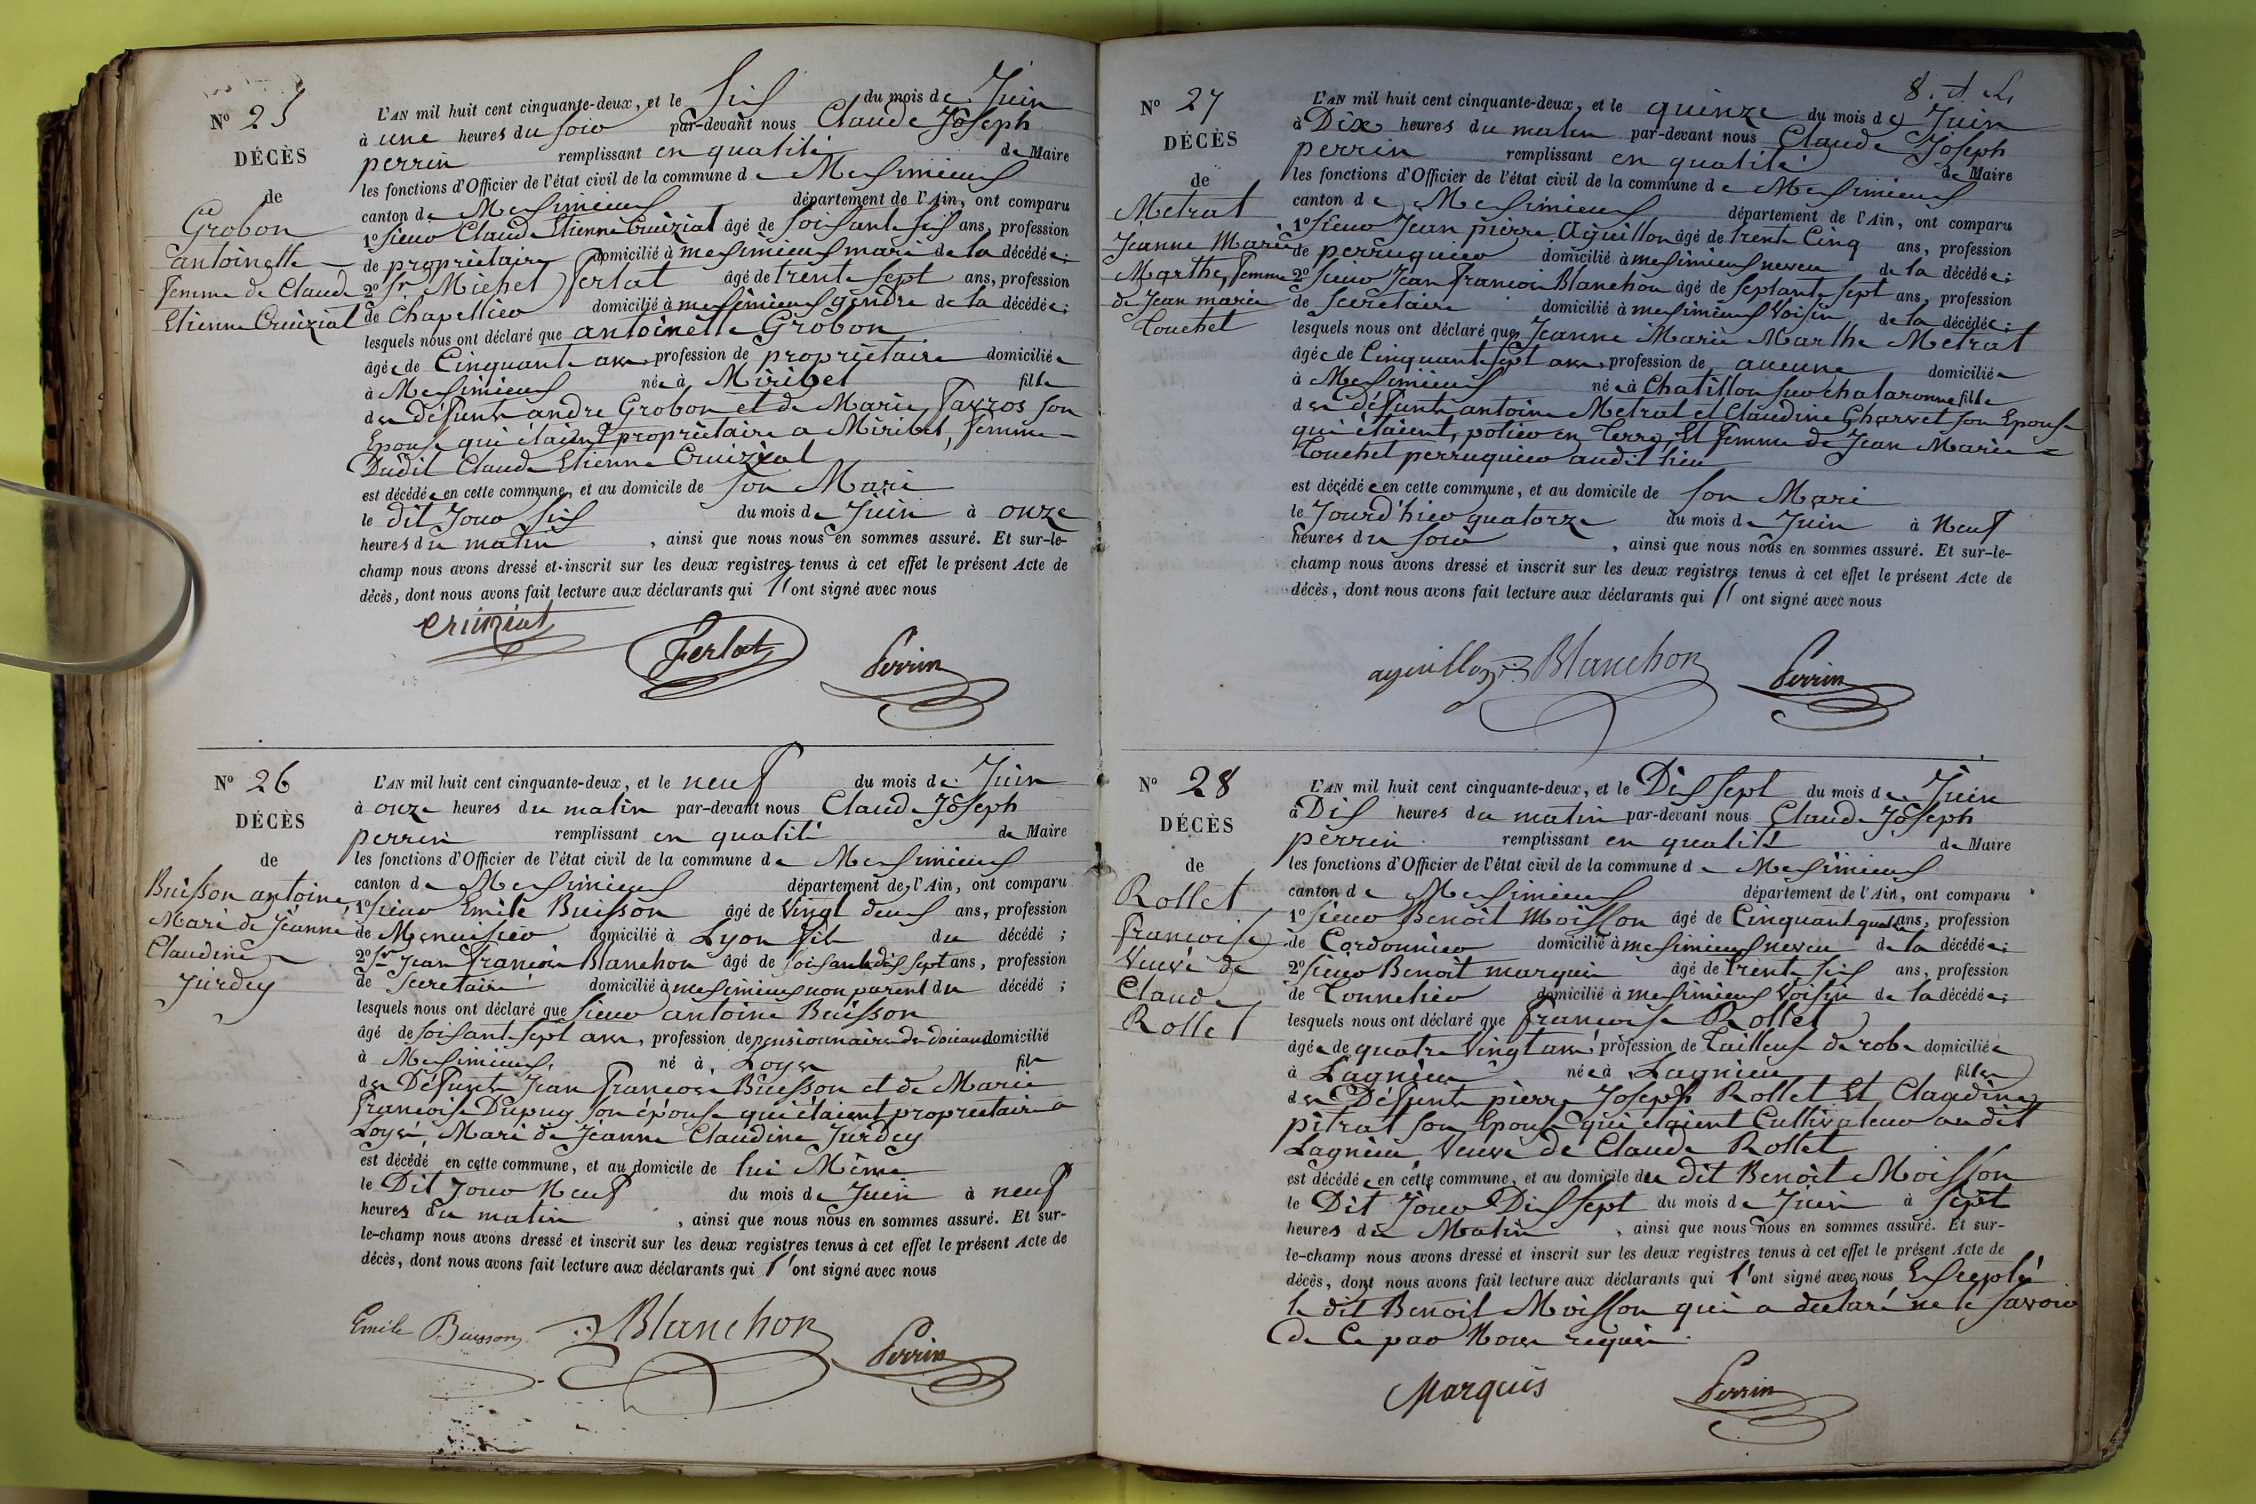 N° 25
DÉCÈS
de
Grobon
antoinette
femme de Claude
Etienne Cruiziat
L'AN mil huit cent cinquante-deux, et le Six du mois de Juin
à une heures du soir par-devant nous Claude Joseph
perrin remplissant en qualité de Maire
les fonctions d'Officier de l'état civil de la commune de Meximieux
canton de Meximieux département de l'Ain, ont comparu
1° Sieur Claude Etienne Cruiziat âgé de soixante six ans, profession
de propriétaire domicilié à meximieux mari de la décédée;
2° Sr Michel ferlat âgé de trente sept ans, profession
de Chapellier domicilié à meximieux gendre de la décédée;
lesquels nous ont déclaré que antoinette Grobon
âgée de Cinquante ans, profession de propriétaire domiciliée
à Meximieux née à Miribel fille
des défunts andre Grobon et de Marie son
Epouse qui étaient propriétaire a Miribel, femme
Dudit Claude Etienne Cruiziat
est décédée en cette commune, et au domicile de son Mari
le dit Jour Six du mois de Juin à onze
heures du matin , ainsi que nous nous en sommes assuré. Et sur-le-
champ nous avons dressé et inscrit sur les deux registres tenus à cet effet le présent Acte de
décès, dont nous avons fait lecture aux déclarants qui l'ont signé avec nous
cruiziat
ferlat
Perrin
N° 26
DÉCÈS
de
Buisson antoine,
Mari de Jeanne
Claudine
Jurdey
L'AN mil huit cent cinquante-deux, et le neuf du mois de Juin
à onze heures du matin par-devant nous Claude Joseph
perrin remplissant en qualité de Maire
les fonctions d'Officier de l'état civil de la commune de Meximieux
canton de Meximieux département de l'Ain, ont comparu
1° Sieur Emile Buisson âgé de Vingt deux ans, profession
de Menuisier domicilié à Lyon fils du décédé;
2° Sr Jean francois Blanchon âgé de soixante dix sept ans, profession
de Secretaire domicilié à meximieux non parent du décédé;
lesquels nous ont déclaré que Sieur antoine Buisson
âgé de soixante sept ans, profession de pensionnaire de domicilié
à Meximieux, né à Loyes fils
des Défunts Jean francois Buisson et de Marie
francoise Dupuy son épouse qui étaient propriétaire a
Loyes, Mari de Jeanne Claudine Jurdey
est décédé en cette commune, et au domicile de lui Même
le Dit Jour Neuf du mois de Juin à neuf
heures du matin , ainsi que nous nous en sommes assuré. Et sur-
le-champ nous avons dressé et inscrit sur les deux registres tenus à cet effet le présent Acte de
décès, dont nous avons fait lecture aux déclarants qui l'ont signé avec nous
Emile Buisson
Blanchon
Perrin
N° 27
DÉCÈS
de
Metrat
Jeanne Marie
Marthe, femme
de Jean marie
Touchet
L'AN mil huit cent cinquante-deux, et le quinze du mois de Juin
à Dix heures du matin par-devant nous Claude Joseph
perrin remplissant en qualité de Maire
les fonctions d'Officier de l'état civil de la commune de Meximieux
canton de Meximieux département de l'Ain, ont comparu
1° Sieur Jean pierre aguillon âgé de trente Cinq ans, profession
de perruquier domicilié à meximieux neveu de la décédée;
2° Sieur Jean francois Blanchon âgé de septante sept ans, profession
de Secretaire domicilié à meximieux Voisin de la décédée;
lesquels nous ont déclaré que Jeanne Marie Marthe Metrat
âgée de Cinquante sept ans, profession de aucune domiciliée
à Meximieux née à Chatillon sur chalaronne fille
des défunts antoine Metrat et Claudine Charvet son Epouse
qui étaient, potier en terre, Et femme de Jean Marie
Touchet perruquier audit lieu
est décédée en cette commune, et au domicile de son Mari
le Jourd'hier quatorze du mois de Juin à Neuf
heures du soir , ainsi que nous nous en sommes assuré. Et sur-le-
champ nous avons dressé et inscrit sur les deux registres tenus à cet effet le présent Acte de
décès, dont nous avons fait lecture aux déclarants qui l'ont signé avec nous
aguillon
Blanchon
Perrin
N° 28
DÉCÈS
de
Rollet
francoise
Veuve de
Claude
Rollet
L'AN mil huit cent cinquante-deux, et le Dix sept du mois de Juin
à Dix heures du matin par-devant nous Claude Joseph
perrin remplissant en qualité de Maire
les fonctions d'Officier de l'état civil de la commune de Meximieux
canton de Meximieux département de l'Ain, ont comparu
1° Sieur Benoit Moisson âgé de Cinquante quatre ans, profession
de Cordonnier domicilié à meximieux neveu de la décédée;
2° Sieur Benoit marquis âgé de trente six ans, profession
de Tonnelier domicilié à meximieux Voisin de la décédée;
lesquels nous ont déclaré que francoise Rollet
âgée de quatre Vingt ans, profession de Tailleuse de robe domiciliée
à Lagnieu née à Lagnieu fille
des Défunts pierre Joseph Rollet Et Claudine
pitrat son Epouse qui étaient Cultivateur audit
Lagnieu, Veuve de Claude Rollet
est décédée en cette commune, et au domicile du dit Benoit Moisson
le Dit Jour Dix sept du mois de Juin à sept
heures du Matin , ainsi que nous nous en sommes assuré. Et sur-
le-champ nous avons dressé et inscrit sur les deux registres tenus à cet effet le présent Acte de
décès, dont nous avons fait lecture aux déclarants qui l'ont signé avec nous Excepté
le dit Benoit Moisson qui a declaré ne le savoir
de Ce par Nous requis.
Marquis
Perrin